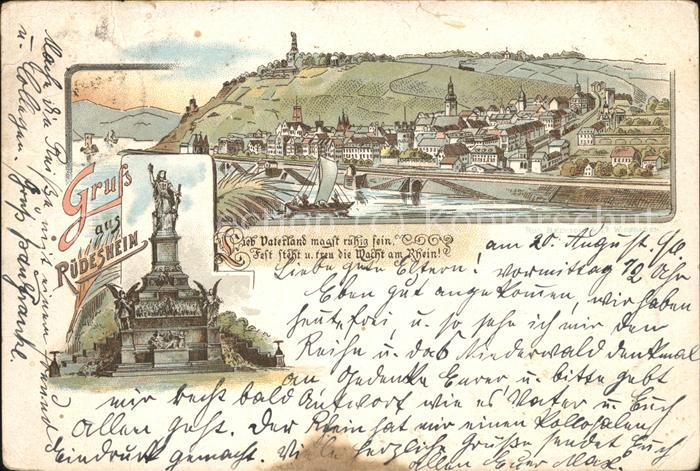 Gruß
aus
RÜDESHEIM
Lieb Vaterland magst ruhig sein,
Fest steht u. treu die Wacht am Rhein!
am 20. August 96
Liebe gute Eltern! vormittag 12 Uhr
Eben gut angekommen, wir haben
heute frei, u. so sehe ich mir den
Rhein u. das Niederwalddenkmal
an Gedenke Eurer u. bitte gebt
mir recht bald Antwort wie es Vater u. Euch
allen geht. Der Rhein hat mir einen kollosalen
Eindruck gemacht. Viele herzliche Grüße sendet Euch
allen Euer Max
mit einem Freund
u. Collegen.